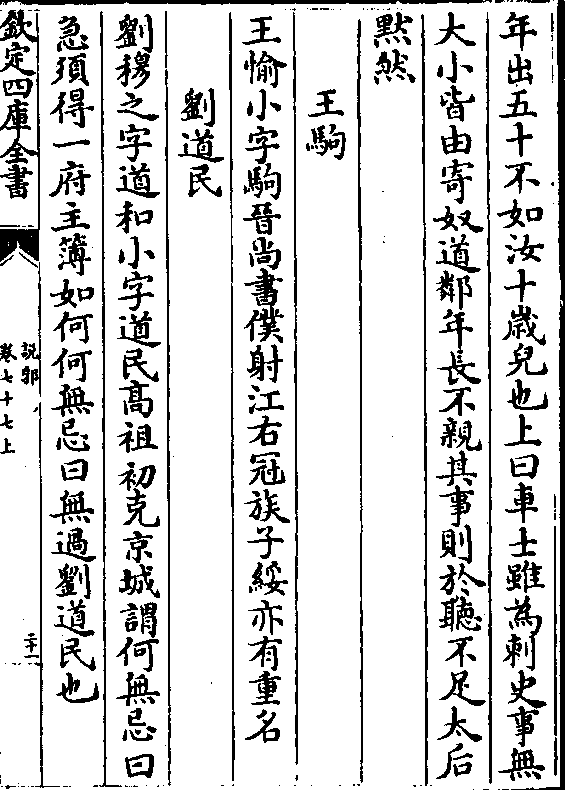 年出五十不如汝十歳兒也上曰車士雖為刺史事無
大小皆由寄奴道鄰年長不親其事則於聽不足太后
默然
王駒
王愉小字駒晉尚書僕射江右冠族子綏亦有重名
劉道民
劉穆之字道和小字道民髙祖初克京城謂何無忌曰
急須得一府主簿如何何無忌曰無過劉道民也
欽定四庫全書
説郛
卷七十七上
二十一